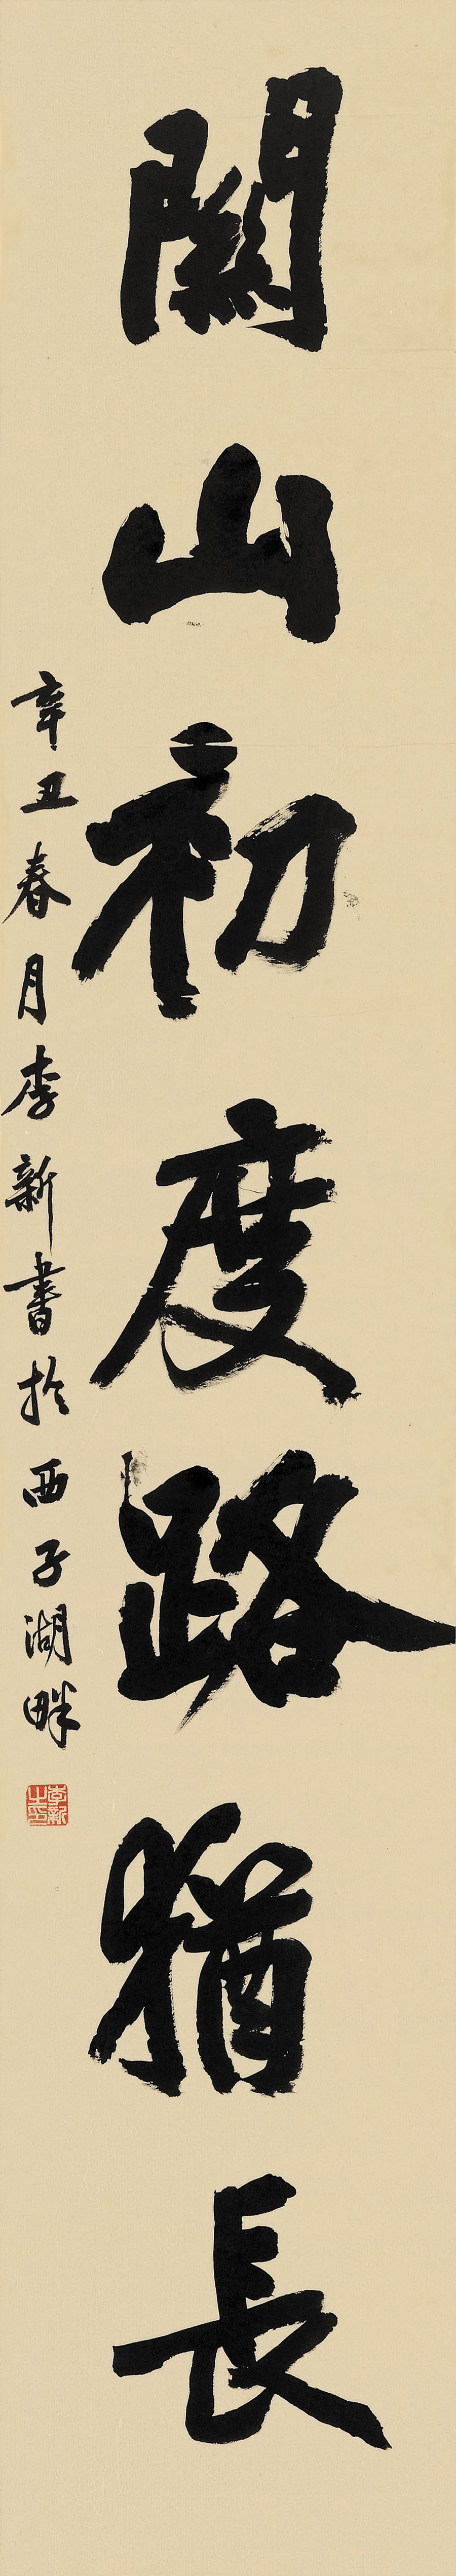 關山初度路猶長
辛丑春月李新書於西子湖畔
李新之印